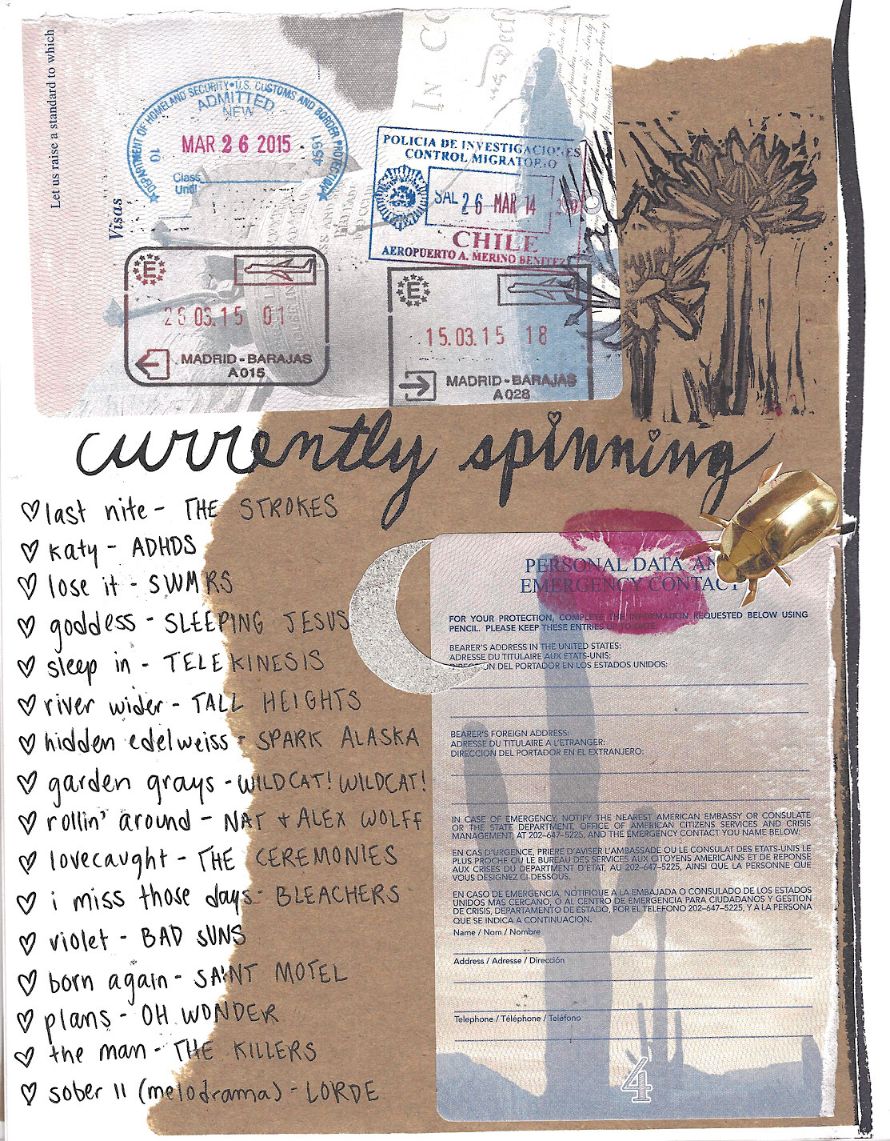 Let us raise a standard to which
Visas
DEPARTMENT OF HOMELAND SECURITY • U.S. CUSTOMS AND BORDER PROTECTION
ADMITTED
NEW
MAR 26 2015
10
4591
Class
Until
IN CO
POLICIA DE INVESTIGACIONES
CONTROL MIGRATORIO
SAL 26 MAR 14
CHILE
AEROPUERTO A. MERINO BENITEZ
E
26.03.15 01
MADRID-BARAJAS
A015
E
15.03.15 18
MADRID-BARAJAS
A028
currently spinning
last nite - THE STROKES
katy - ADHDS
lose it - SWMRS
goddess - SLEEPING JESUS
sleep in - TELEKINESIS
river wider - TALL HEIGHTS
hidden edelweiss - SPARK ALASKA
garden grays - WILDCAT! WILDCAT!
rollin' around - NAT + ALEX WOLFF
lovecaught - THE CEREMONIES
i miss those days - BLEACHERS
violet - BAD SUNS
born again - SAINT MOTEL
plans - OH WONDER
the man - THE KILLERS
sober II (melodrama) - LORDE
PERSONAL DATA AN
EMERGENCY CONTACT
FOR YOUR PROTECTION, COMPLETE THE INFORMATION REQUESTED BELOW USING
PENCIL. PLEASE KEEP THESE ENTRIES
BEARER'S ADDRESS IN THE UNITED STATES:
ADRESSE DU TITULAIRE AUX ETATS-UNIS:
DIRECCION DEL PORTADOR EN LOS ESTADOS UNIDOS:
BEARER'S FOREIGN ADDRESS:
ADRESSE DU TITULAIRE A L'ETRANGER:
DIRECCION DEL PORTADOR EN EL EXTRANJERO:
IN CASE OF EMERGENCY, NOTIFY THE NEAREST AMERICAN EMBASSY OR CONSULATE
OR THE STATE DEPARTMENT, OFFICE OF AMERICAN CITIZENS SERVICES AND CRISIS
MANAGEMENT AT 202-647-5225, AND THE EMERGENCY CONTACT YOU NAME BELOW.
EN CAS D'URGENCE, PRIERE D'AVISER L'AMBASSADE OU LE CONSULAT DES ETATS-UNIS LE
PLUS PROCHE OU LE BUREAU DES SERVICES AUX CITOYENS AMERICAINS ET DE REPONSE
AUX CRISES DU DEPARTEMENT D'ETAT, AU 202-647-5225, AINSI QUE LA PERSONNE QUE
VOUS DESIGNEZ CI-DESSOUS.
EN CASO DE EMERGENCIA, NOTIFIQUE A LA EMBAJADA O CONSULADO DE LOS ESTADOS
UNIDOS MAS CERCANO, O AL CENTRO DE EMERGENCIA PARA CIUDADANOS Y GESTION
DE CRISIS, DEPARTAMENTO DE ESTADO, POR EL TELEFONO 202-647-5225, Y A LA PERSONA
QUE SE INDICA A CONTINUACION.
Name / Nom / Nombre
Address / Adresse / Dirección
Telephone / Téléphone / Teléfono
4